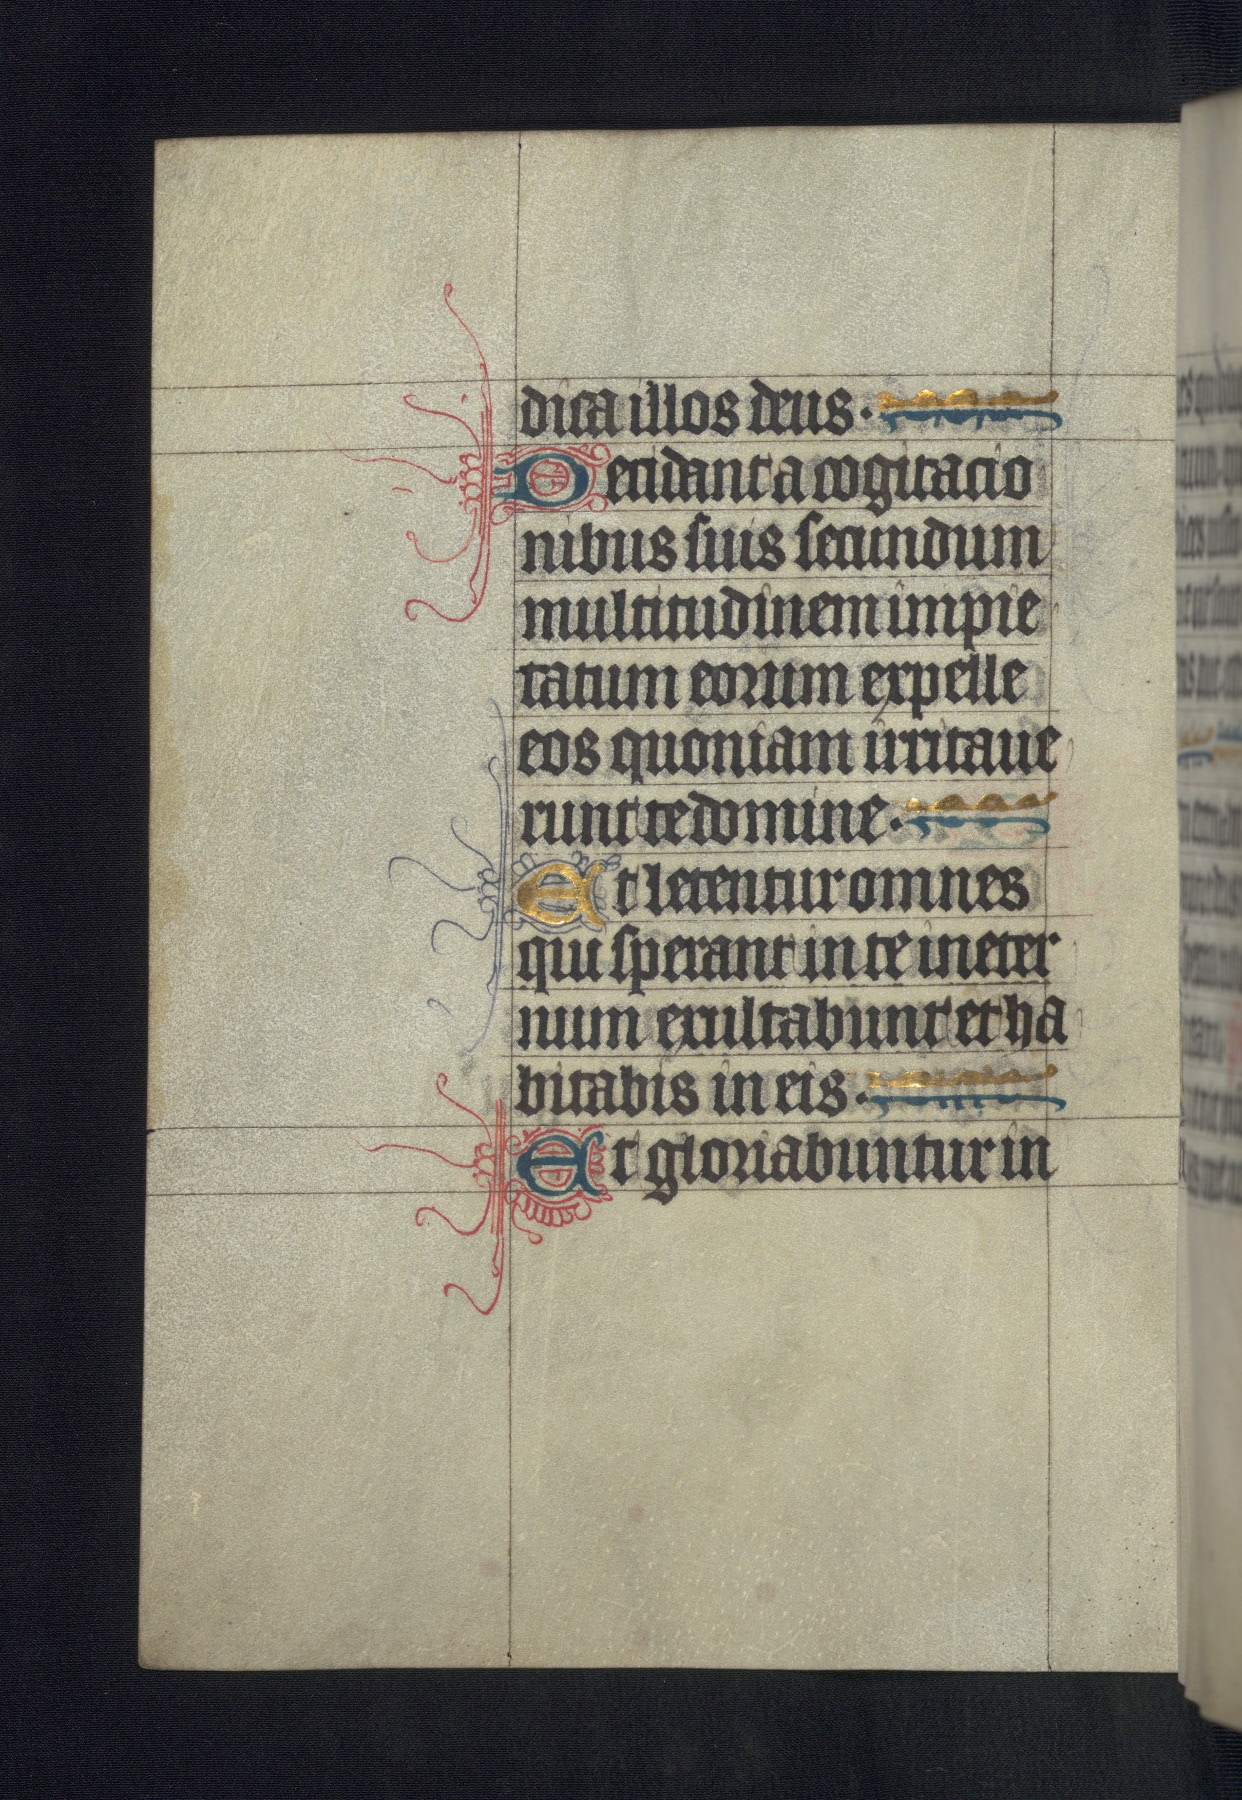 dica illos deus.
Decidant a cogitacio
nibus suis secundum
multitudinem impie
tatum eorum expelle
eos quoniam irritaue
runt te domine.
Et letentur omnes
qui sperant in te in eter
num exultabunt et ha
bitabis in eis.
Et gloriabuntur in